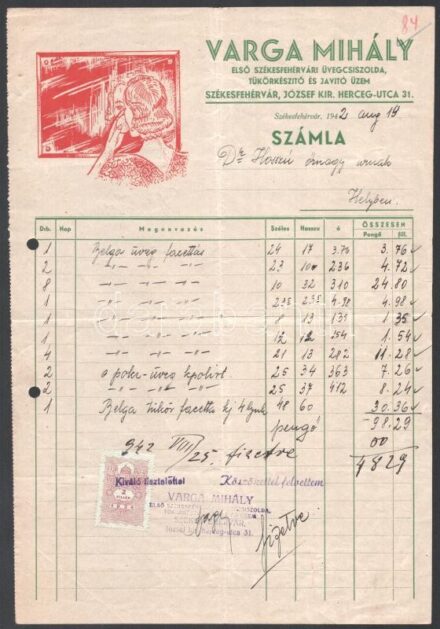 84
VARGA MIHÁLY
ELSŐ SZÉKESFEHÉRVÁRI ÜVEGCSISZOLDA,
TÜKÖRKÉSZÍTŐ ÉS JAVÍTÓ ÜZEM
SZÉKESFEHÉRVÁR, JÓZSEF KIR. HERCEG-UTCA 31.
Székesfehérvár, 1942 aug 19
SZÁMLA
Dr Hosszú őrnagy urnak
Helyben
Drb. Nap Megnevezés Széles Hossza á ÖSSZESEN
Pengő fill.
1 Belga üveg facettás 24 17 3.76
2 -"- -"- -"- 23 10 236 4.72
8 -"- -"- -"- 10 32 310 24.80
1 -"- -"- -"- 235 235 4.98 4.98
1 -"- -"- -"- 8 13 1.35
1 -"- -"- -"- 12 12 154 1.54
4 -"- -"- -"- 21 13 282 11.28
2 25 34 363 7.26
2 -"- -"- -"- 25 37 412 8.24
1 Belga tükör facetta 48 60 30.36
pengő 98.29
00
9829
942 VIII/25. fizetve
Kiváló tisztelettel Köszönettel felvettem
VARGA MIHÁLY
József kir. herceg-utca 31.
fizetve